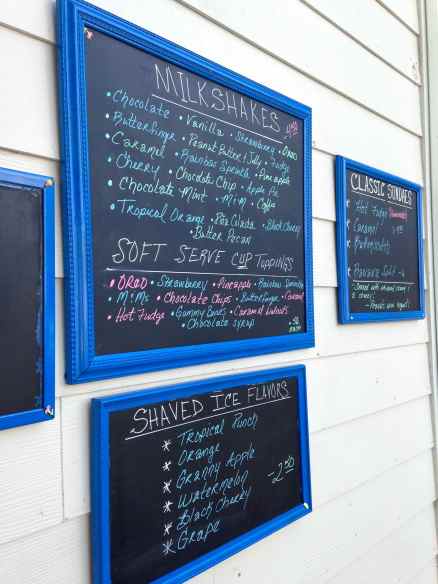 MILKSHAKES
• Chocolate • Vanilla • Strawberry • OREO
• Butterfinger • Peanut Butter & Jelly • Fudge
• Caramel • Rainbow Sprinkle • Pineapple
• Cherry • Chocolate Chip • Apple Pie
• Chocolate Mint • M+M • Coffee
• Tropical Orange • Piña Colada • Black Cherry
• Butter Pecan
SOFT SERVE CUP Toppings
• OREO • Strawberry • Pineapple • Rainbow
• M+Ms • Chocolate Chips • Butterfinger • Caramel
• Hot Fudge • Gummy Bears • Caramel
• Chocolate syrup .50
CLASSIC SUNDAES
* Hot Fudge
* Caramel
* Butterscotch
* Banana Split
SHAVED ICE FLAVORS
* Tropical Punch
* Orange
* Granny Apple
* Watermelon - 2.50
* Black Cherry
* Grape